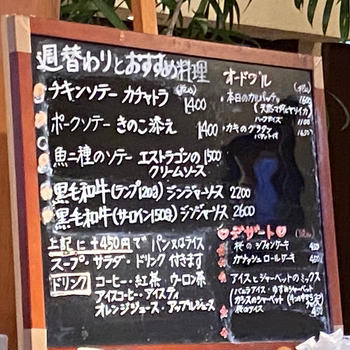 週替わりとおすすめ料理
チキンソテー カチャトラ (税込) 1400
ポークソテー きのこ添え 1400
魚二種のソテー エストラゴンの 1500
クリームソース
黒毛和牛(ランプ120g) ジンジャーソース 2200
黒毛和牛(サーロイン150g) ジンジャーソース 2600
上記に+450円で パン又はライス
スープ・サラダ・ドリンク 付きます
ドリンク コーヒー・紅茶・ウーロン茶
アイスコーヒー・アイスティ
オレンジジュース・アップルジュース
オードヴル
本日のカルパッチョ
ハーフサイズ 1100
カキのグラタン
デザート
桜のシフォンケーキ
ガナッシュロールケーキ
アイスとシャーベットのミックス
バニラアイス・ゆずシャーベット
桜のアイス